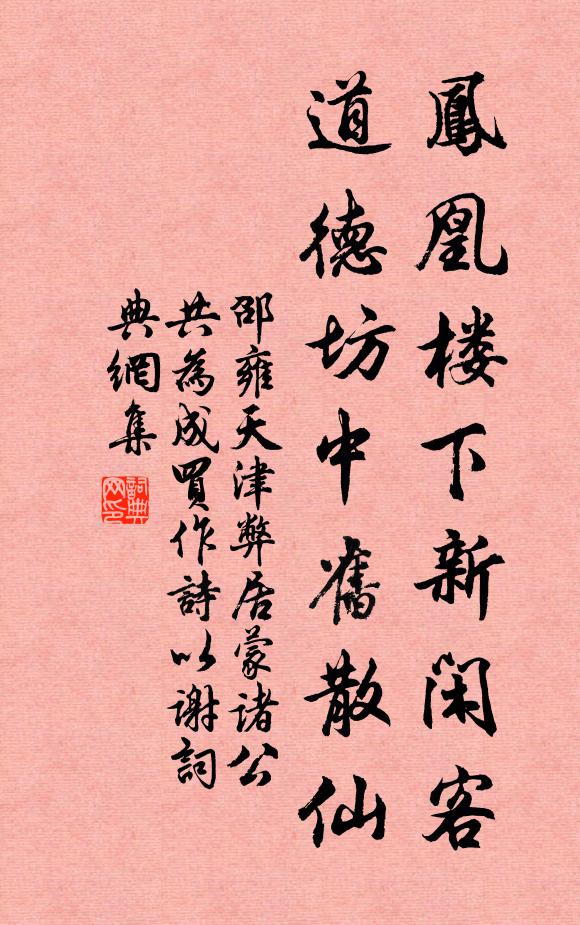 鳳凰楼下新閑客
道德坊中舊散仙
邵雍天津弊居蒙诸公
共為成買作詩以谢詞
典網集
詞典网印